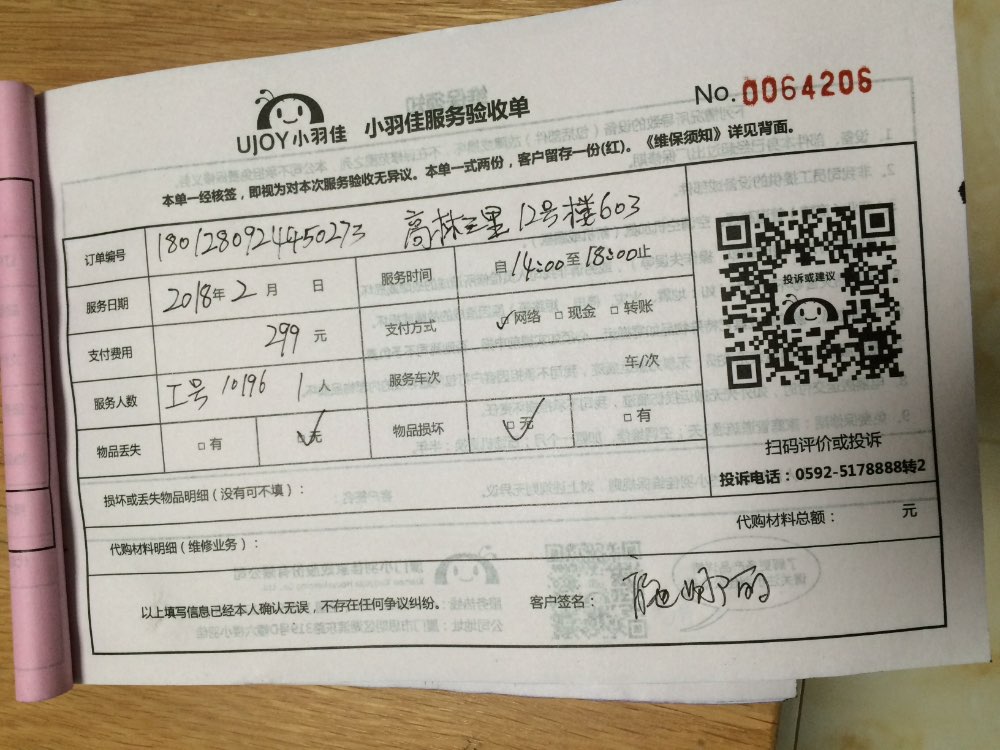 UJOY小羽佳 小羽佳服务验收单 No. 0064206
本单一经核签，即视为对本次服务验收无异议。本单一式两份，客户留存一份(红)。《维保须知》详见背面。
订单编号 1801280924450273 高林三里 12号楼603
服务日期 2018年2月 日 服务时间 自14:00至18:00止
支付费用 299元 支付方式 ✓网络 □现金 □转账
服务人数 工号10196 1人 服务车次 车/次
物品丢失 □有 ✓无 物品损坏 ✓无 □有
投诉或建议
扫码评价或投诉
投诉电话：0592-5178888转2
损坏或丢失物品明细（没有可不填）：
代购材料明细（维修业务）： 代购材料总额： 元
以上填写信息已经本人确认无误，不存在任何争议纠纷。 客户签名：